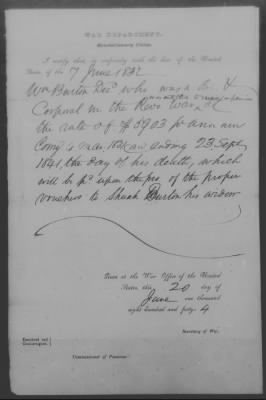 WAR DEPARTMENT,
Revolutionary Claim.
I certify that in conformity with the law of the United
States, of the 7 June 1832
Wm Burton Decd who was a &
Corporal in the Revo War,
the rate of $ per annum
Comg 4 Mar. and ending 23 Sept
1841, the day of his death, which
will be pd upon the pro. of the proper
vouchers to Burton his widow
Given at the War Office of the United
States, this 20 day of
June one thousand
eight hundred and forty-4
Secretary of War.
Examined and
Countersigned
Commissioner of Pensions.